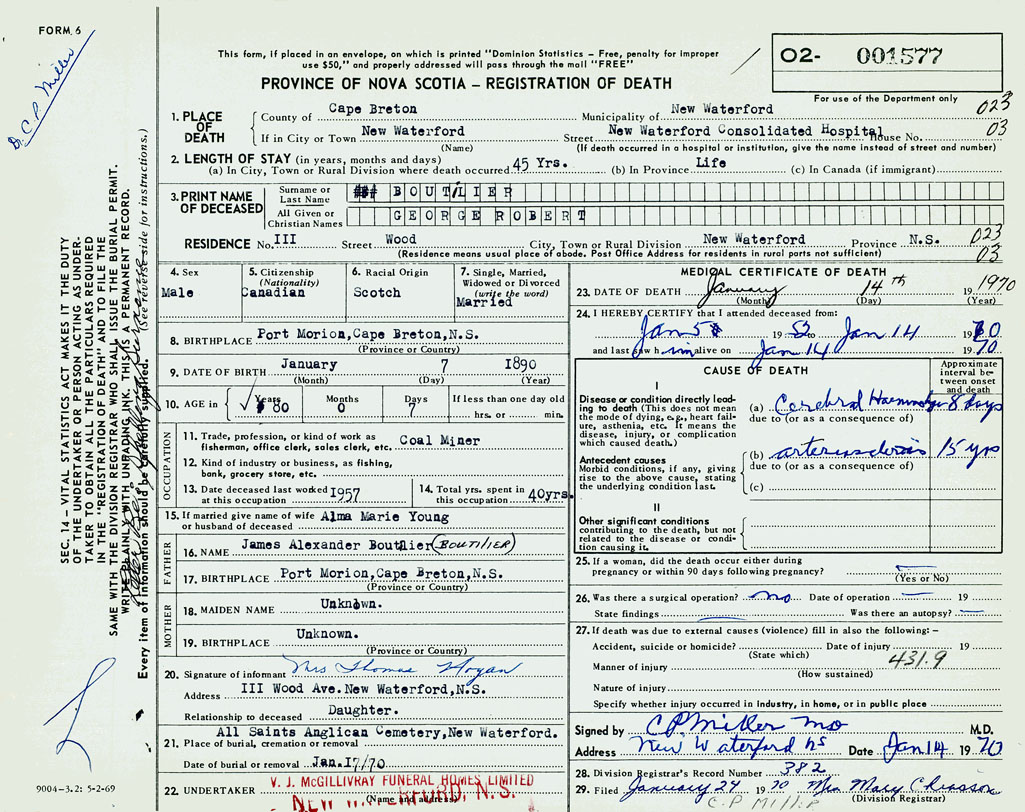 FORM. 6
Dr. C.P. Miller
This form, if placed in an envelope, on which is printed "Dominion Statistics - Free, penalty for improper
use $50," and properly addressed will pass through the mail "FREE"
O2- 001577
PROVINCE OF NOVA SCOTIA – REGISTRATION OF DEATH
For use of the Department only
1. PLACE OF DEATH
County of Cape Breton Municipality of New Waterford 023
If in City or Town New Waterford Street New Waterford Consolidated Hospital House No. 03
(Name) (If death occurred in a hospital or institution, give the name instead of street and number)
2. LENGTH OF STAY (in years, months and days)
(a) In City, Town or Rural Division where death occurred 45 Yrs. (b) In Province Life (c) In Canada (if immigrant)
3. PRINT NAME OF DECEASED
Surname or Last Name BOUTILIER
All Given or Christian Names GEORGE ROBERT
RESIDENCE No. III Street Wood City, Town or Rural Division New Waterford Province N.S. 023
(Residence means usual place of abode. Post Office Address for residents in rural parts not sufficient) 03
4. Sex
Male
5. Citizenship
(Nationality)
Canadian
6. Racial Origin
Scotch
7. Single, Married,
Widowed or Divorced
(write the word)
Married
8. BIRTHPLACE Port Morion,Cape Breton,N.S.
(Province or Country)
9. DATE OF BIRTH January 7 1890
(Month) (Day) (Year)
10. AGE in Years Months Days If less than one day old
80 0 7 hrs. or min.
OCCUPATION
11. Trade, profession, or kind of work as
fisherman, office clerk, sales clerk, etc. Coal Miner
12. Kind of industry or business, as fishing,
bank, grocery store, etc.
13. Date deceased last worked
at this occupation I957
14. Total yrs. spent in
this occupation 40yrs.
15. If married give name of wife
or husband of deceased Alma Marie Young
FATHER
16. NAME James Alexander Boutlier (BOUTILIER)
17. BIRTHPLACE Port Morion,Cape Breton,N.S.
(Province or Country)
MOTHER
18. MAIDEN NAME Unknown.
19. BIRTHPLACE Unknown.
(Province or Country)
20. Signature of informant Mrs Thomas Hogan
Address III Wood Ave.New Waterford,N.S.
Relationship to deceased Daughter.
All Saints Anglican Cemetery,New Waterford.
21. Place of burial, cremation or removal
Date of burial or removal Jan.I7/70
22. UNDERTAKER V. J. McGILLIVRAY FUNERAL HOMES LIMITED
NEW WATERFORD, N. S.
(Name and address)
MEDICAL CERTIFICATE OF DEATH
23. DATE OF DEATH January 14th 1970
(Month) (Day) (Year)
24. I HEREBY CERTIFY that I attended deceased from:
Jan 5 19 Jan 14 1970
and last saw him alive on Jan 14 1970
CAUSE OF DEATH
Approximate
interval be-
tween onset
and death
I
Disease or condition directly lead-
ing to death (This does not mean
the mode of dying, e.g., heart fail-
ure, asthenia, etc. It means the
disease, injury, or complication
which caused death.)
(a) Cerebral Haemorrhage 8 days
due to (or as a consequence of)
Antecedent causes
Morbid conditions, if any, giving
rise to the above cause, stating
the underlying condition last.
(b) arteriosclerosis 15 yrs
due to (or as a consequence of)
(c)
II
Other significant conditions
contributing to the death, but not
related to the disease or condi-
tion causing it.
25. If a woman, did the death occur either during
pregnancy or within 90 days following pregnancy?
(Yes or No)
26. Was there a surgical operation? no Date of operation 19
State findings Was there an autopsy?
27. If death was due to external causes (violence) fill in also the following: –
Accident, suicide or homicide? Date of injury 19
(State which)
431.9
Manner of injury
(How sustained)
Nature of injury
Specify whether injury occurred in industry, in home, or in public place
Signed by C P Miller MD M.D.
Address New Waterford NS Date Jan 14 1970
28. Division Registrar's Record Number 382
29. Filed January 24 1970 Mrs Mary Chiasson
(Division Registrar)
C.P MILLER
SEC. 14 – VITAL STATISTICS ACT MAKES IT THE DUTY
OF THE UNDERTAKER OR PERSON ACTING AS UNDER-
TAKER TO OBTAIN ALL THE PARTICULARS REQUIRED
IN THE "REGISTRATION OF DEATH" AND TO FILE THE
SAME WITH THE DIVISION REGISTRAR WHO SHALL ISSUE THE BURIAL PERMIT.
WRITE PLAINLY WITH UNFADING INK. THIS IS A PERMANENT RECORD.
Every item of information should be carefully supplied. (See reverse side for instructions.)
9004–3.2: 5-2-69